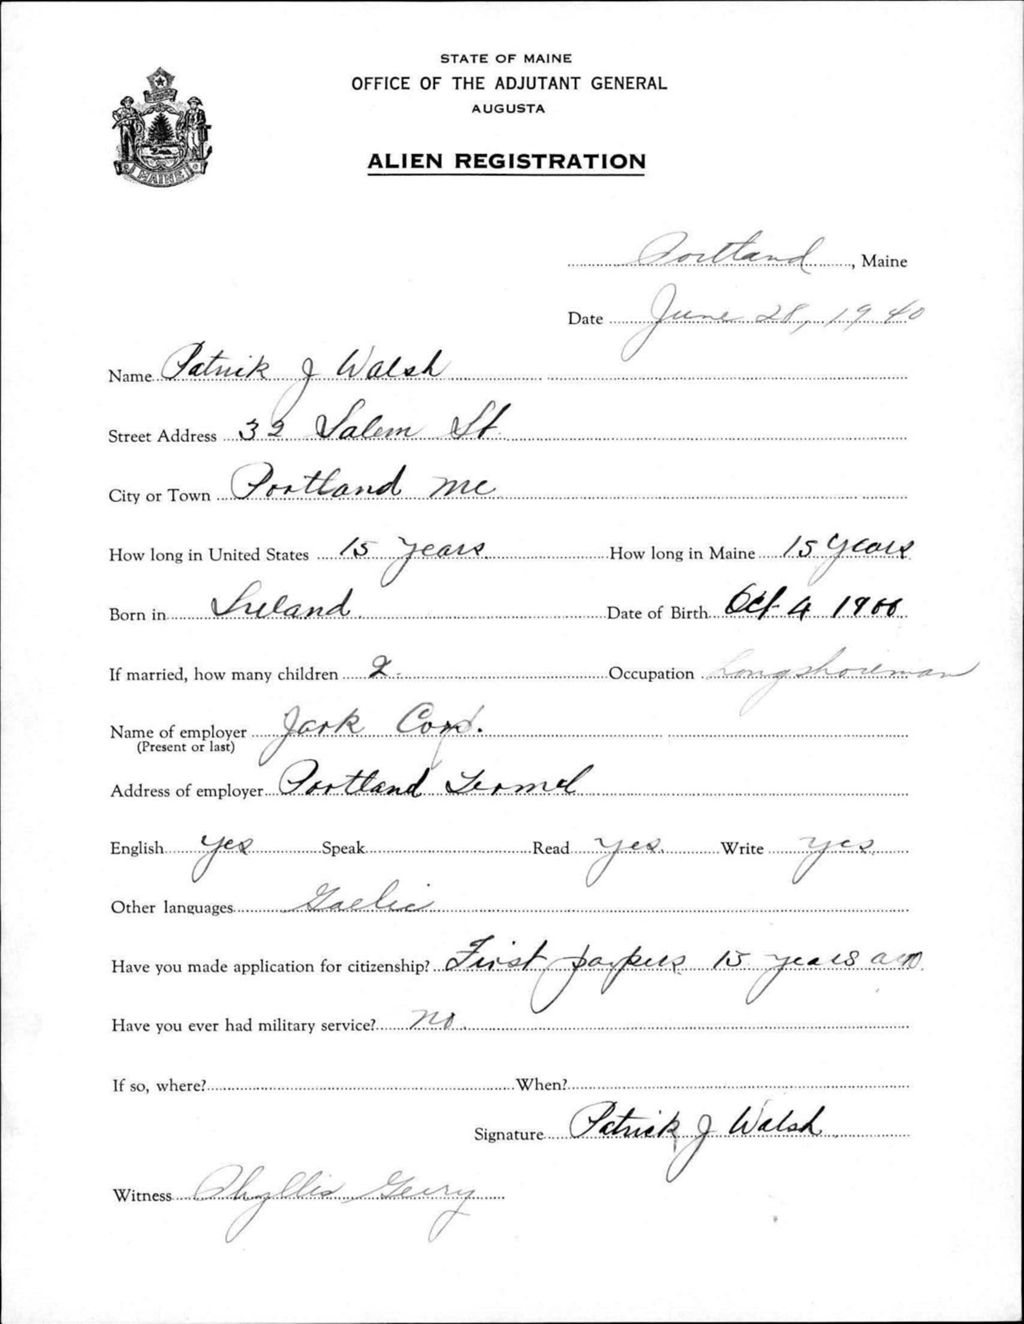 STATE OF MAINE
OFFICE OF THE ADJUTANT GENERAL
AUGUSTA
MAINE
ALIEN REGISTRATION
Portland, Maine
Date June 28, 1940
Name Patrick J Walsh
Street Address 32 Salem St.
City or Town Portland Me
How long in United States 15 years How long in Maine 15 years
Born in Ireland Date of Birth Oct 4 1900
If married, how many children 2. Occupation Longshoreman
Name of employer Jark Corp.
(Present or last)
Address of employer Portland
English yes Speak Read yes. Write yes
Other languages Gaelic
Have you made application for citizenship? First papers 15 years
Have you ever had military service? no.
If so, where? When?
Signature Patrick J Walsh
Witness Phyllis Geary